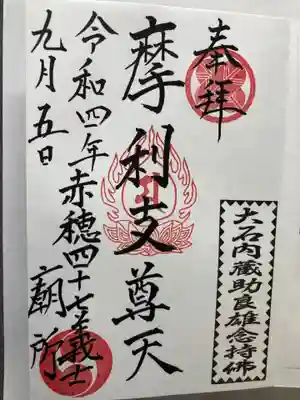 奉拝
大石内蔵助良雄念持佛
摩利支尊天
令和四年赤穂四十七義士廟所
九月五日